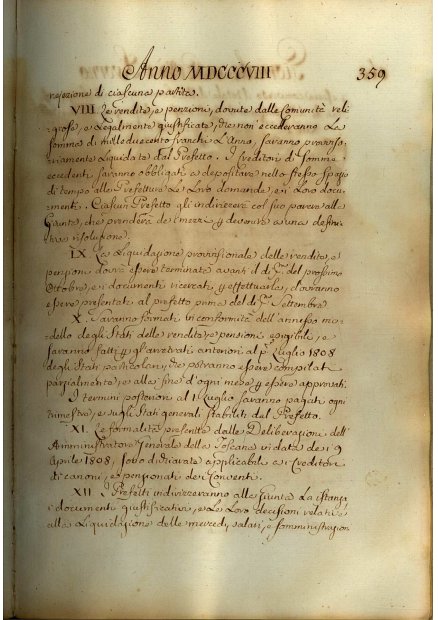 Anno MDCCCVIII 359
rejezione di ciascuna partita.
VIII. Le rendite, e penzioni, dovute dalle Comunità reli-
giose, e legalmente giustificate, che non eccederanno La
somma di mille duecento franchi L'Anno, saranno provviso-
riamente Liquidate dal Prefetto. I Creditori di Somme
eccedenti saranno obbligati a depositare nello stesso spazio
di tempo alle Prefetture Le Loro domande, e i Loro docu-
menti. Ciascun Prefetto gli indirizzerà col suo parere alla
Giunta, che prenderà de' mezzi p devenire a una defini-
tiva risoluzione.
IX. La Liquidazione provvisionale delle rendite, e
pensioni dovrà essere terminata avanti il dì p.º del prossimo
Ottobre, e i documenti ricercati p effettuarla, dovranno
essere presentati al prefetto prima del dì p.º Settembre
X. Saranno formati in conformità dell'annesso mo-
dello degli Stati delle rendite, e pensioni esigibili, e
saranno fatti p gli arretrati anteriori al p.º Luglio 1808
degli Stati particolari, che potranno essere compilati
parzialmente, e alla fine d'ogni mese p essere approvati.
I termini posteriori al 1 Luglio saranno pagati ogni
trimestre, e sugli Stati generali stabiliti dal Prefetto.
XI. Le formalità prescritte dalle Deliberazioni dell'
Amministratore Generale della Toscana in data de i 9
Aprile 1808, sono dichiarate applicabili a i Creditori
di canoni, e pensionati dei Conventi.
XII. I Prefetti indirizzeranno alla Giunta La istanza
i documenti giustificativi, e Le Loro decisioni relative
alla Liquidazione delle mercedi, salari, e somministrazion